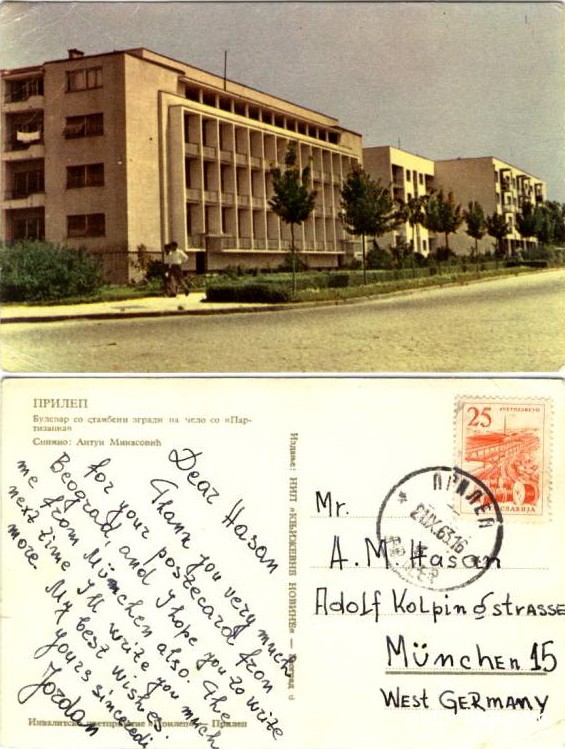 ПРИЛЕП
Булевар со станбени згради на чело со «Пар-
тизанка»
Снимио: Антун Минасовић
Dear Hasan
Thank you very much
for your postecard from
Beograd, and I hope you to write
me from München also. The
next time I'll write you much
more. My best wishes.
yours sinceredi
Jordan
Издање: НИП «КЊИЖЕВНЕ НОВИНЕ» — Београд
Инвалитско претпријатие «Прилеп» — Прилеп
25
ЈУГОСЛАВИЈА
ПРИЛЕП
PRILEP
Mr.
A. M. Hasan
Adolf Kolpingstrasse
München 15
WEST GERMANY